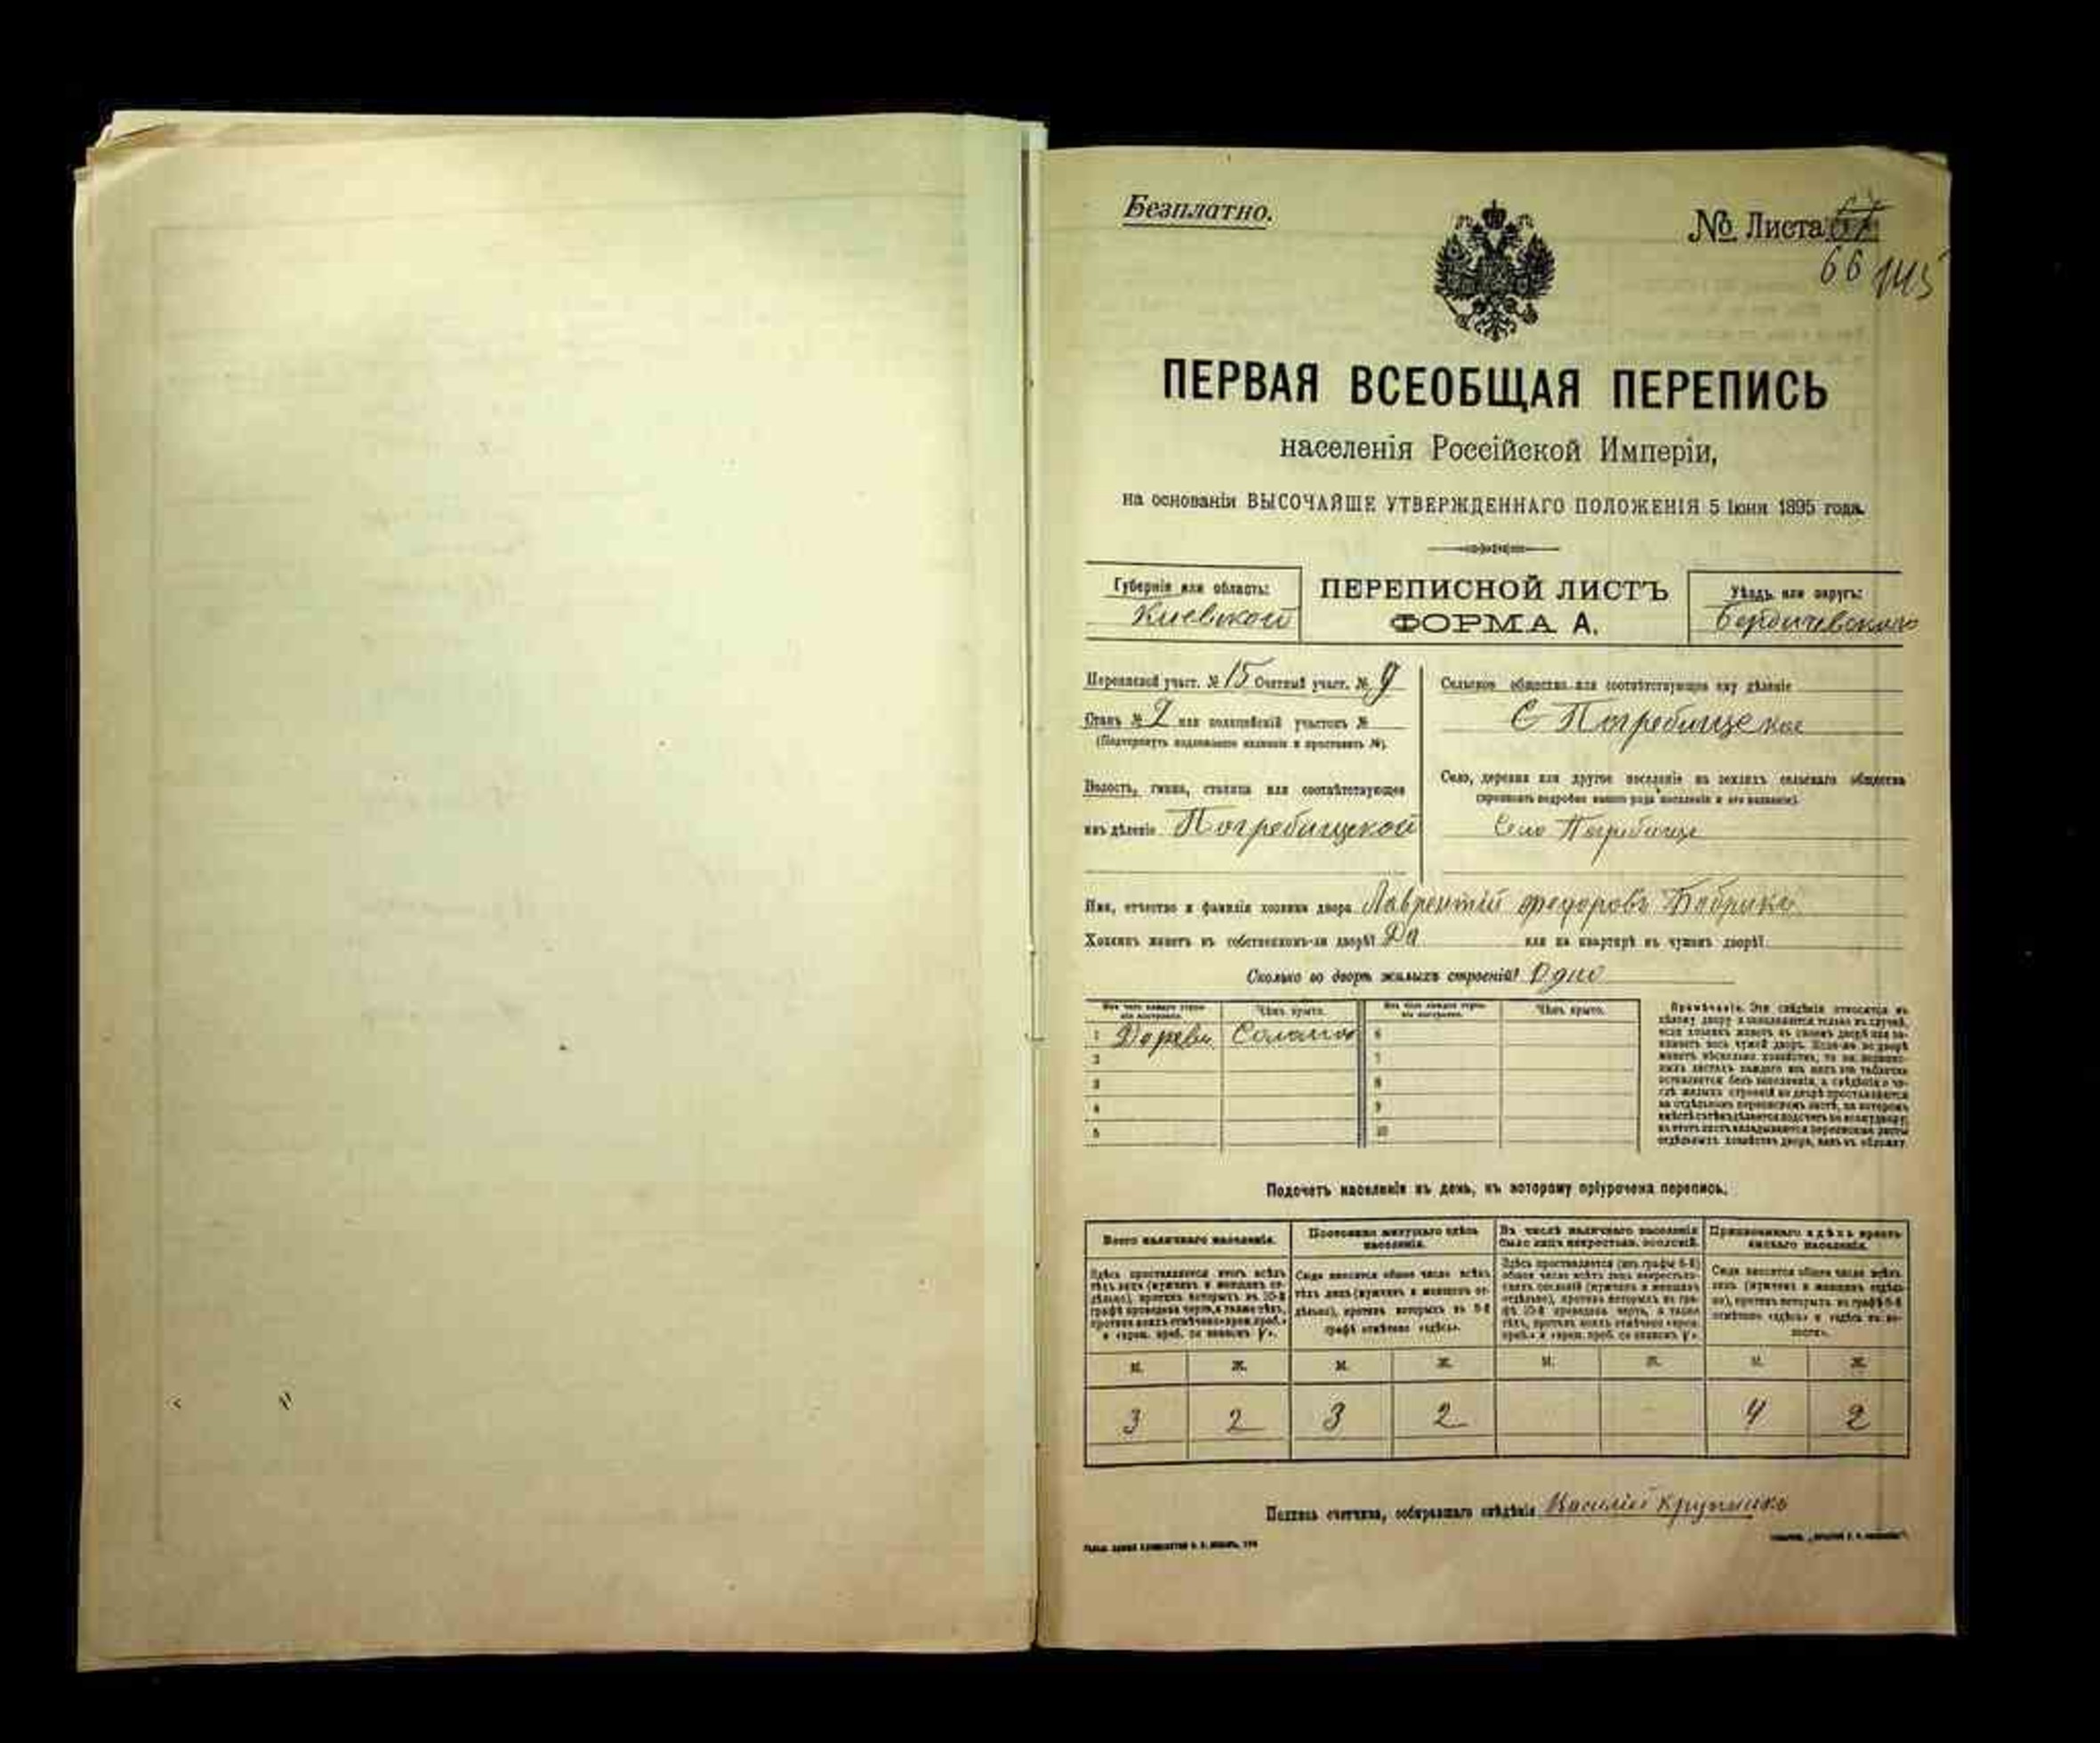 Безплатно.
№ Листа 67
66 145
ПЕРВАЯ ВСЕОБЩАЯ ПЕРЕПИСЬ
населенія Россійской Имперіи,
на основаніи ВЫСОЧАЙШЕ УТВЕРЖДЕННАГО ПОЛОЖЕНІЯ 5 Іюня 1895 года.
Губернія или область:
Киевской
ПЕРЕПИСНОЙ ЛИСТЪ
ФОРМА А.
Уѣздъ или округъ:
Бердичевскаго
Переписной участ. № 15 Счетный участ. № 9
Станъ № 2 или полицейскій участокъ №
(Подчеркнуть надлежащее названіе и проставить №).
Волость, гмина, станица или соотвѣтствующее
имъ дѣленіе Погребищской
Сельское общество или соотвѣтствующее ему дѣленіе
С Погребищское
Село, деревня или другое поселеніе на земляхъ сельскаго общества
(прописать подробно какого рода поселеніе и его названіе).
Село Погребище
Имя, отчество и фамилія хозяина двора Лаврентій Федоровъ
Хозяинъ живетъ въ собственномъ-ли дворѣ? Да или на квартирѣ въ чужомъ дворѣ?
Сколько во дворѣ жилыхъ строеній? Одно
Изъ чего каждое строеніе построено. Чѣмъ крыто. Изъ чего каждое строеніе построено. Чѣмъ крыто.
1 Дерев. Солом 6
2 7
3 8
4 9
5 10
Примѣчаніе. Эти свѣдѣнія относятся къ
цѣлому двору и заполняются только въ случаѣ,
если хозяинъ живетъ въ своемъ дворѣ или за-
нимаетъ весь чужой дворъ. Если-же во дворѣ
Подсчетъ населенія въ день, къ которому пріурочена перепись.
Всего наличнаго населенія.
Постоянно живущаго здѣсь
населенія.
Въ числѣ наличнаго населенія
было лицъ некрестьян. сословій.
Приписаннаго здѣсь кресть-
янскаго населенія.
Здѣсь проставляется итогъ всѣхъ
тѣхъ лицъ (мужчинъ и женщинъ от-
дѣльно), противъ которыхъ въ 10-й
графѣ проведена черта, а также тѣхъ,
противъ коихъ отмѣчено «врем. преб.»
Сюда вносится общее число всѣхъ
тѣхъ лицъ (мужчинъ и женщинъ от-
дѣльно), противъ которыхъ въ 9-й
графѣ отмѣчено «здѣсь».
Сюда вносится общее число всѣхъ
лицъ (мужчинъ и женщинъ отдѣль-
но), противъ которыхъ въ графѣ 8-й
отмѣчено «здѣсь» и «здѣсь въ во-
лости».
М. Ж. М. Ж. М. Ж. М. Ж.
3 2 3 2 4 2
Подпись счетчика, собиравшаго свѣдѣнія Василій